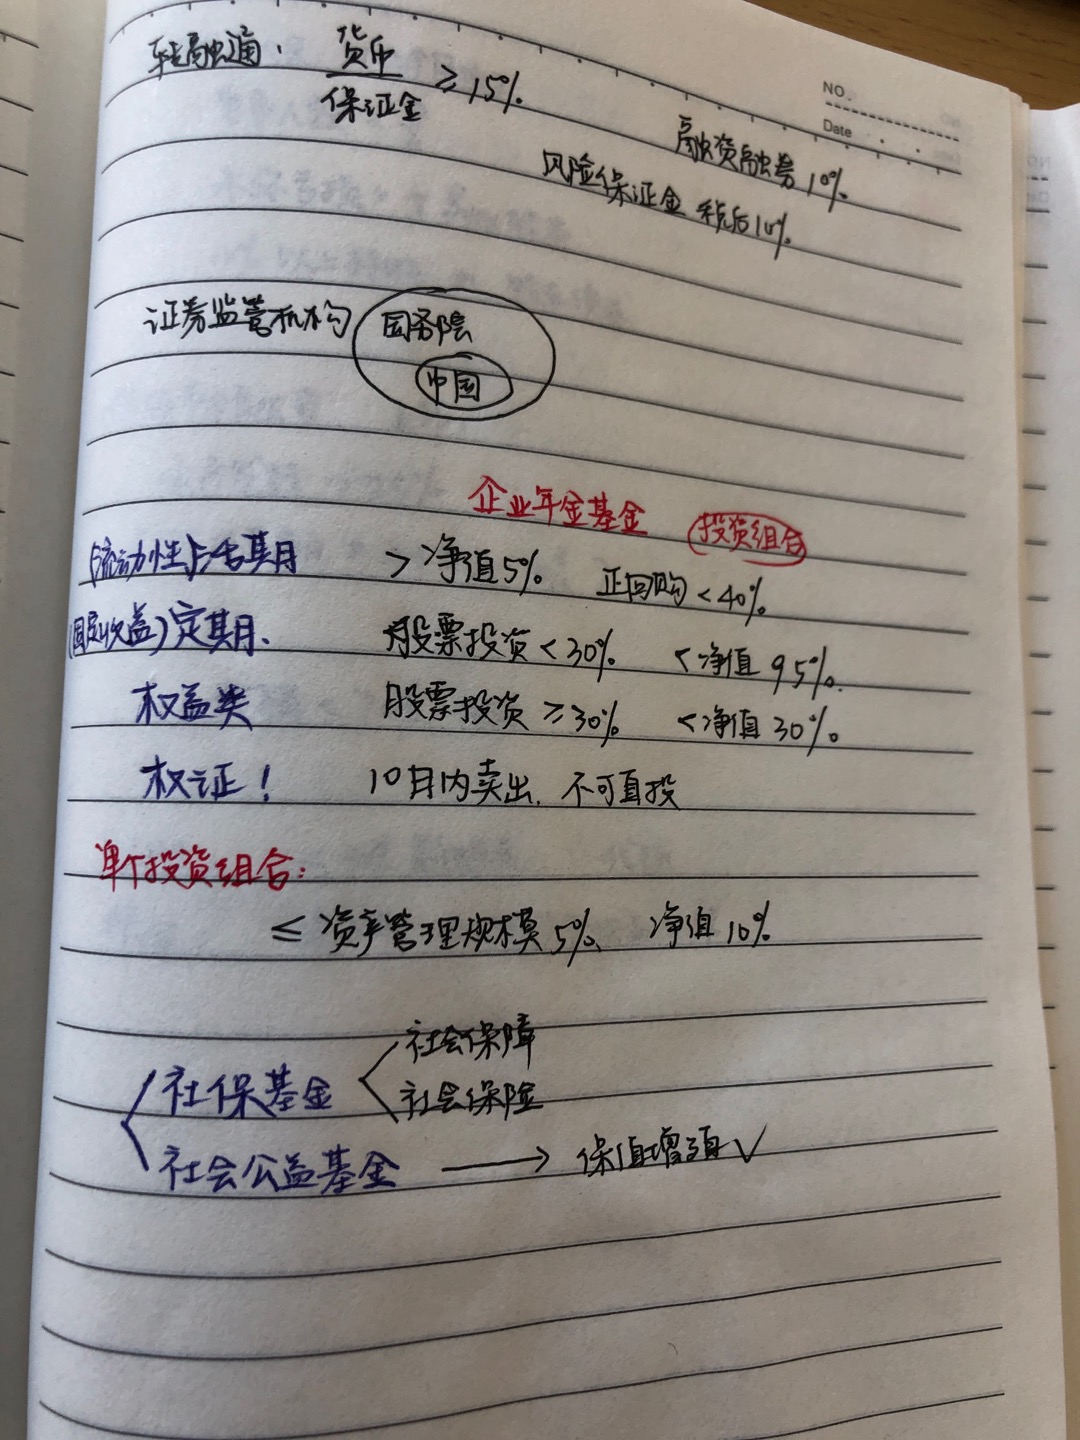 转融通. 货币/保证金 ≥15%
NO.
Date
融资融券 10%
风险保证金 税后10%
证券监管机构 国务院
中国
企业年金基金 投资组合
(流动性)活期 >净值5% 正回购<40%
(固定收益)定期. 股票投资<30% <净值95%.
权益类 股票投资≥30% <净值30%
权证! 10日内卖出. 不可直投
单个投资组合:
≤资产管理规模5%、 净值10%
社保基金 社会保障
社会保险
社会公益基金 → 保值增值√